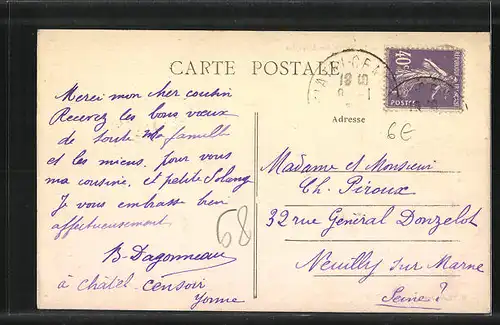 CARTE POSTALE
Merci mon cher cousin
Recevez les bons vœux
de toute ma famille
et les miens. pour vous
ma cousine, et petite Solang
Je vous embrasse bien
affectueusement
B. Dagonneau
à Châtel-Censoir
Yonne
68
40c
POSTES
Adresse
6€
Madame et Monsieur
Ch. Piroux
32 rue Général Donzelot
Neuilly sur Marne
Seine ?